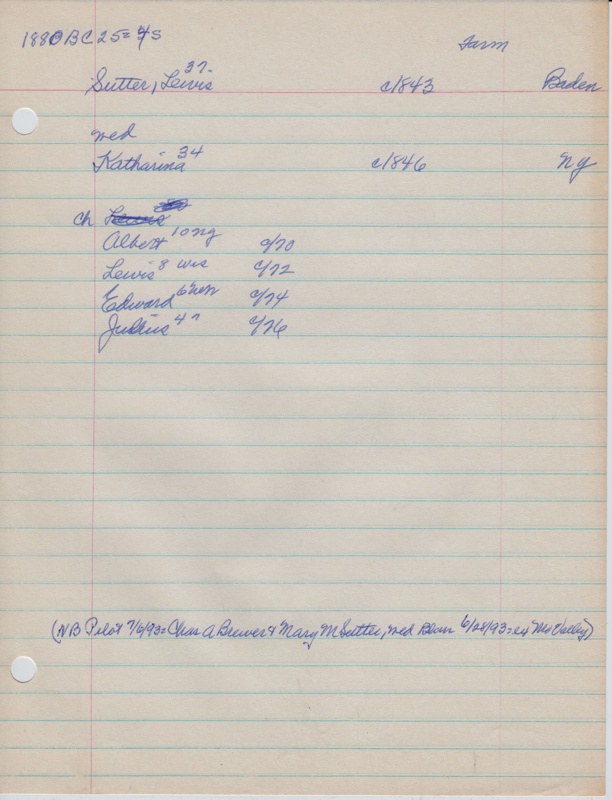 1880 BC 25= 4s
Farm
Sutter, Lewis 37 c/1843 Baden
wed
Katharina 34 c/1846 NY
ch Lewis
Albert 10 NY c/70
Lewis 8 Wis c/72
Edward 6 Neb c/74
Julius 4 " c/76
(NB Pilot 7/6/93= Chas A Brewer & Mary M Sutter, wed Blair 6/28/93= Mo Valley)